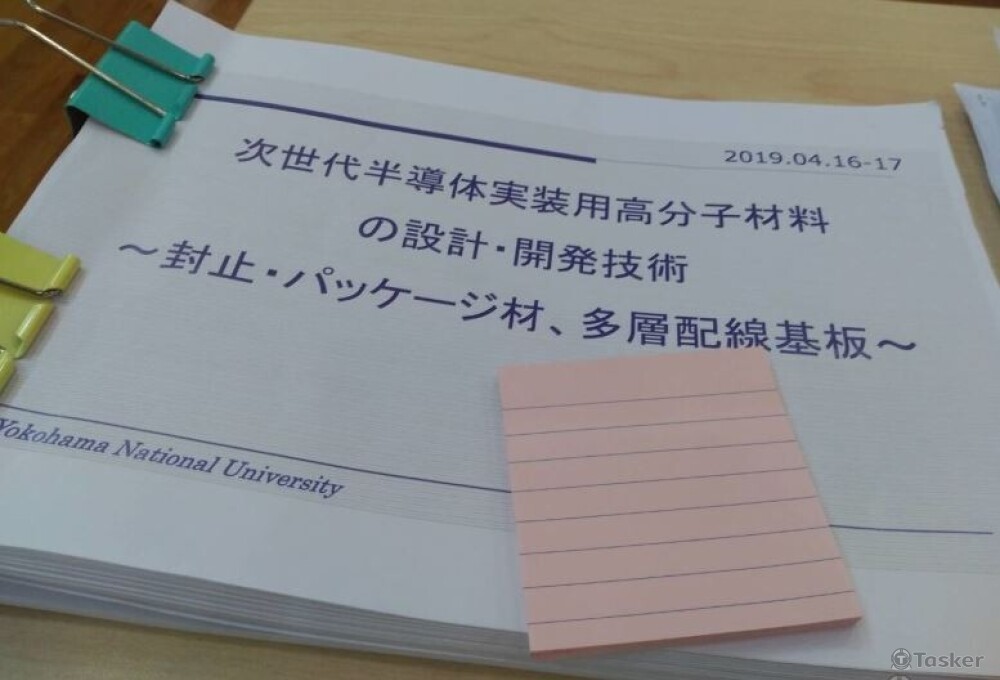 2019.04.16-17
次世代半導体実装用高分子材料
の設計・開発技術
～封止・パッケージ材、多層配線基板～
Yokohama National University
Tasker